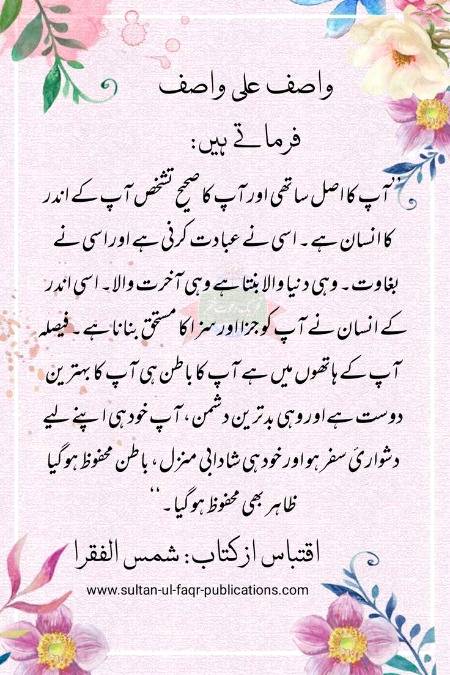 واصف علی واصف
فرماتے ہیں:
’’آپ کا اصل ساتھی اور آپ کا صحیح تشخص آپ کے اندر
کا انسان ہے۔ اسی نے عبادت کرنی ہے اور اسی نے
بغاوت۔ وہی دنیا والا بنتا ہے وہی آخرت والا۔ اسی اندر
کے انسان نے آپ کو جزا اور سزا کا مستحق بنانا ہے۔ فیصلہ
آپ کے ہاتھوں میں ہے آپ کا باطن ہی آپ کا بہترین
دوست ہے اور وہی بدترین دشمن، آپ خود ہی اپنے لیے
دشواریٔ سفر ہو اور خود ہی شادابی منزل، باطن محفوظ ہو گیا
ظاہر بھی محفوظ ہو گیا۔‘‘
اقتباس از کتاب: شمس الفقرا
www.sultan-ul-faqr-publications.com